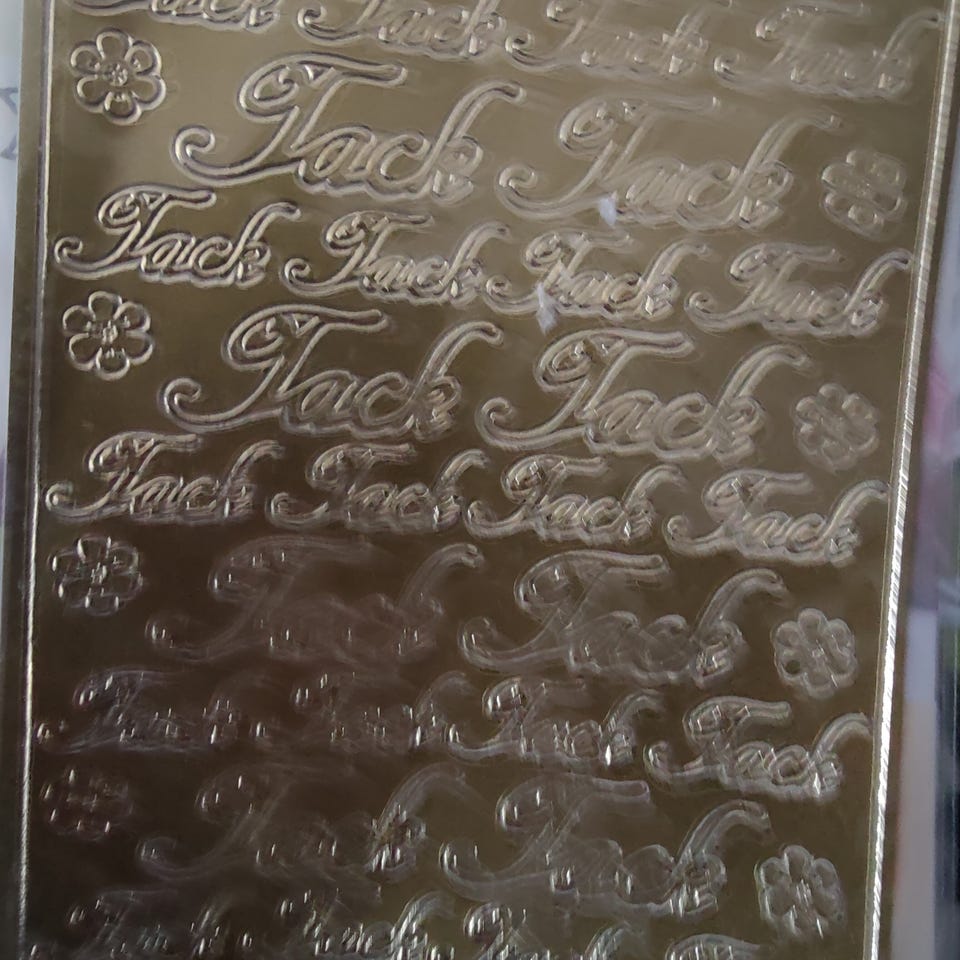 Tack Tack Tack Tack
Tack Tack
Tack Tack Tack Tack
Tack Tack
Tack Tack Tack Tack
Tack Tack
Tack Tack Tack Tack
Tack Tack
Tack Tack Tack